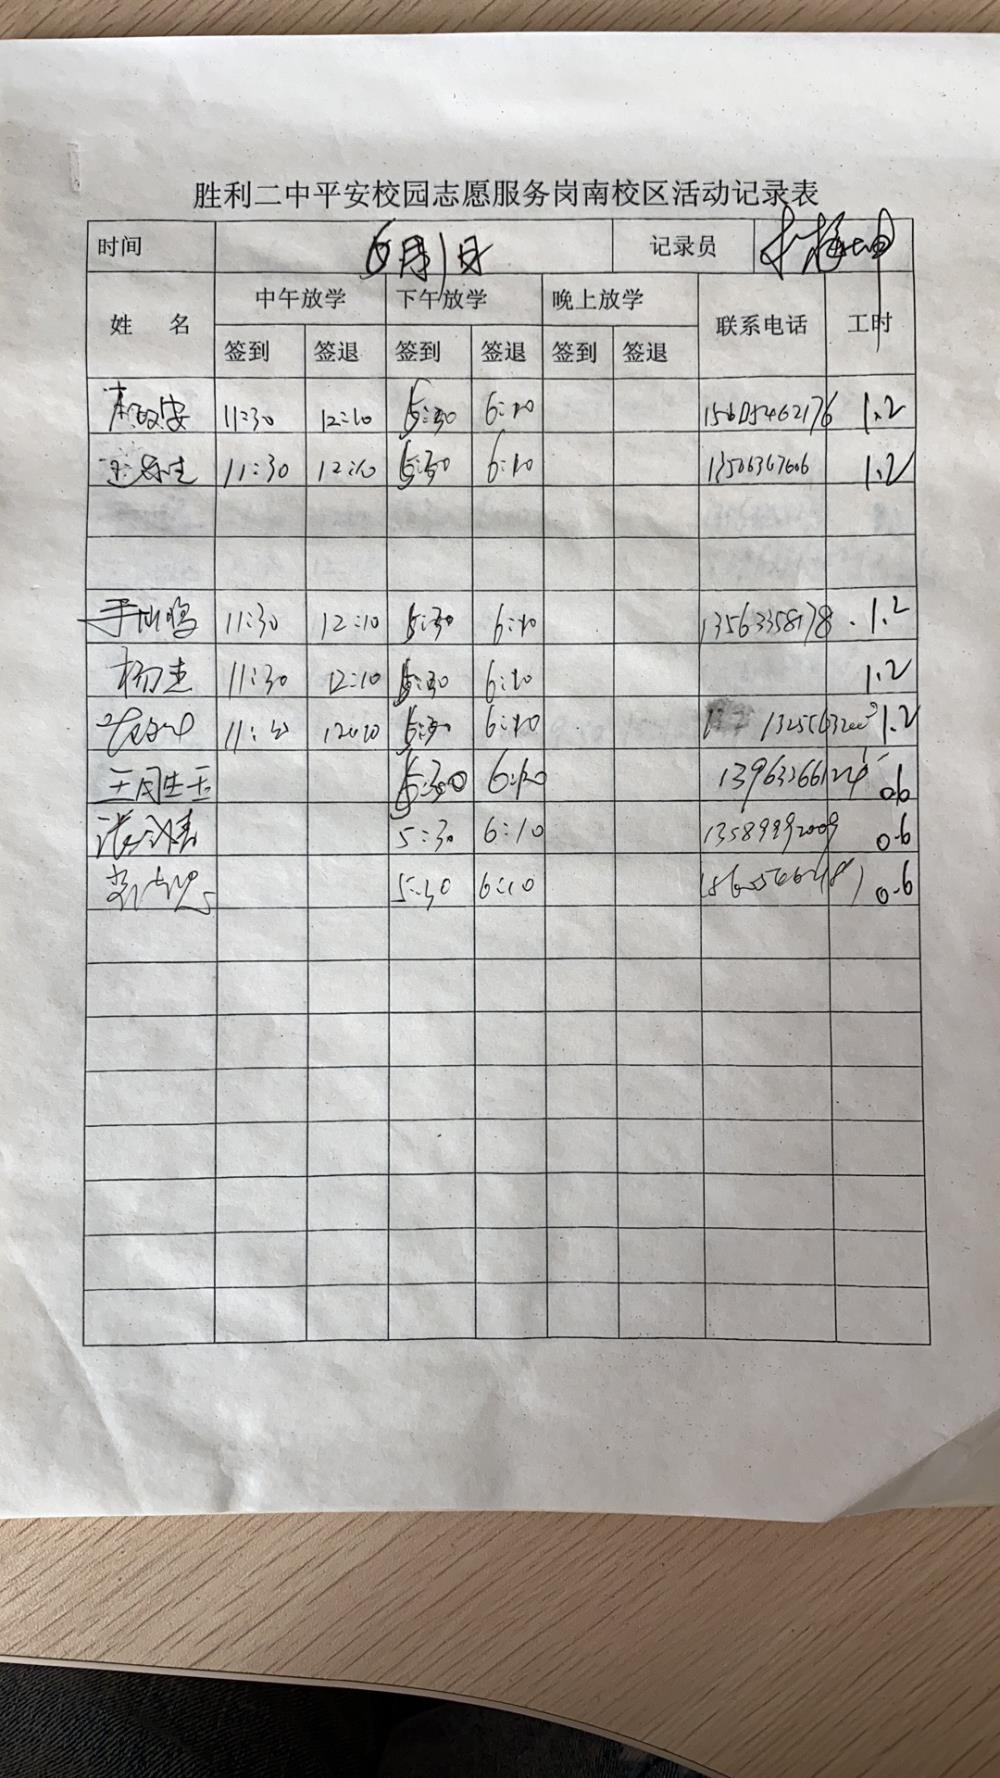 胜利二中平安校园志愿服务岗南校区活动记录表
时间 6月1日 记录员
姓 名 中午放学 下午放学 晚上放学 联系电话 工时
签到 签退 签到 签退 签到 签退
11:30 12:10 5:30 6:10 15605462176 1.2
11:30 12:10 5:30 6:10 13506367606 1.2
11:30 12:10 5:30 6:10 13563358178 1.2
杨杰 11:30 12:10 5:30 6:10 1.2
12:10 5:30 6:10 1.2
5:30 6:10 0.6
5:30 6:10 13589992009 0.6
5:30 6:10 0.6